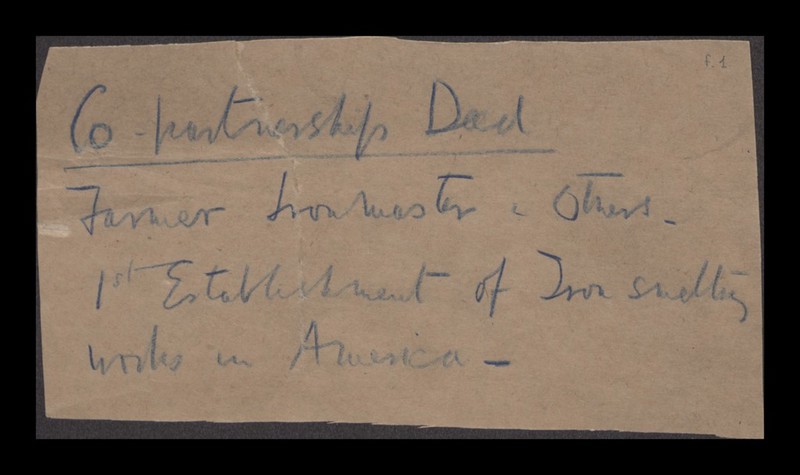 f. 1
Co-partnership Deed
Farmer Ironmaster & Others.
1st Establishment of Iron smelting
works in America -